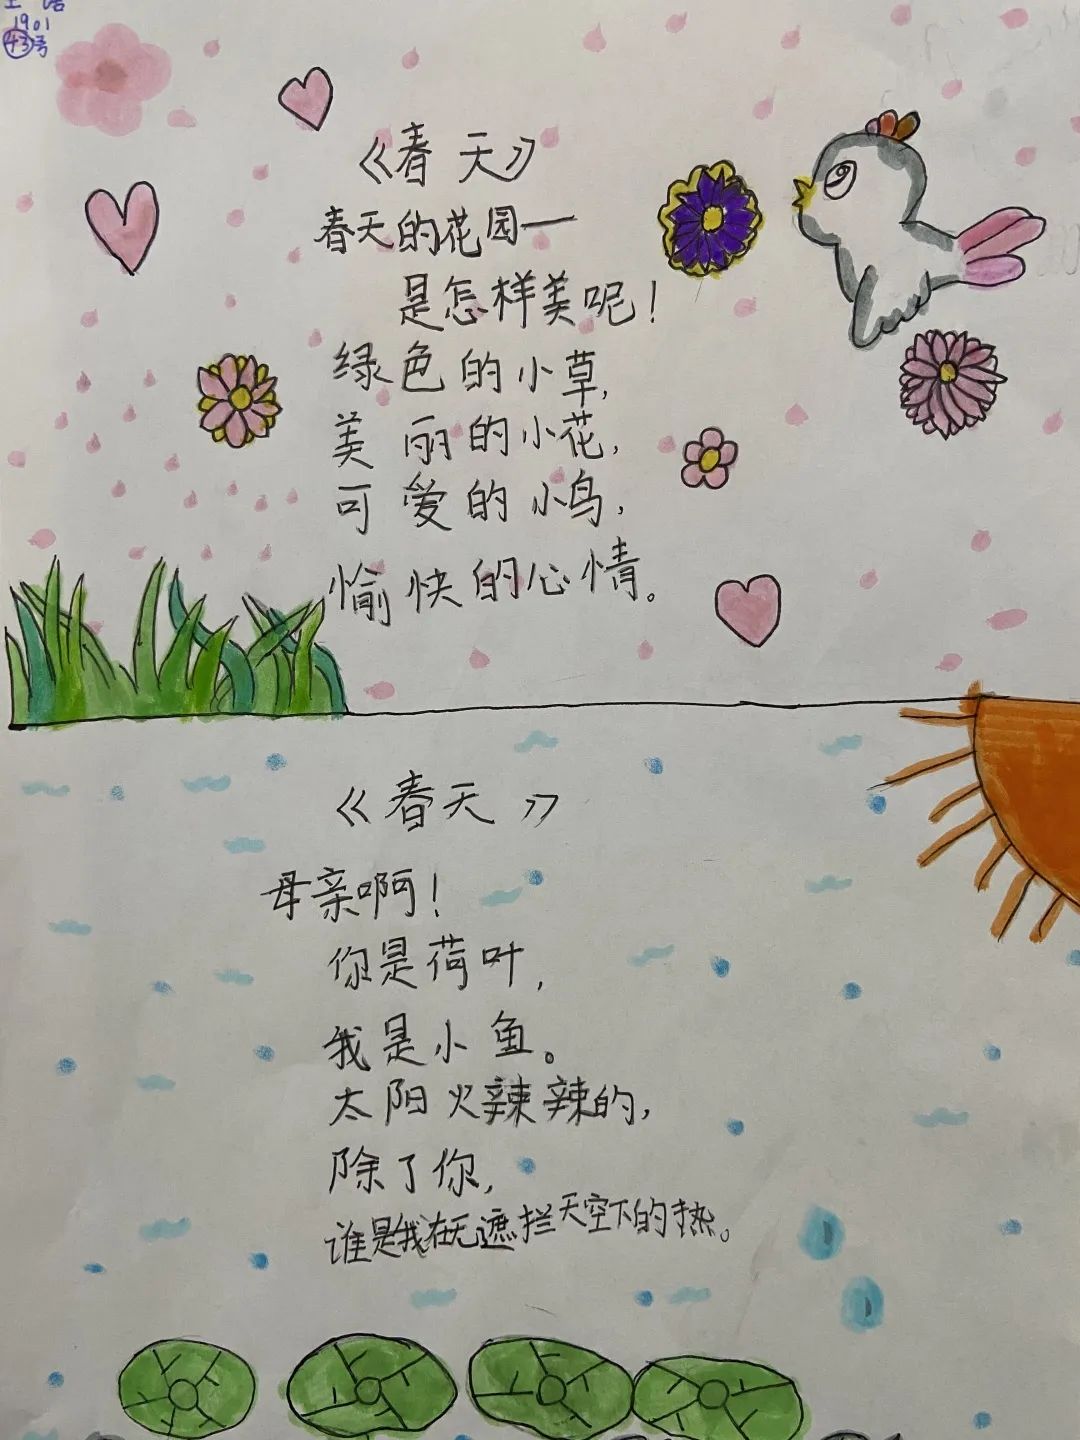 1901
43号
《春天》
春天的花园一
是怎样美呢！
绿色的小草，
美丽的小花，
可爱的小鸟，
愉快的心情。
《春天》
母亲啊！
你是荷叶，
我是小鱼。
太阳火辣辣的，
除了你，
谁是我在无遮拦天空下的热。